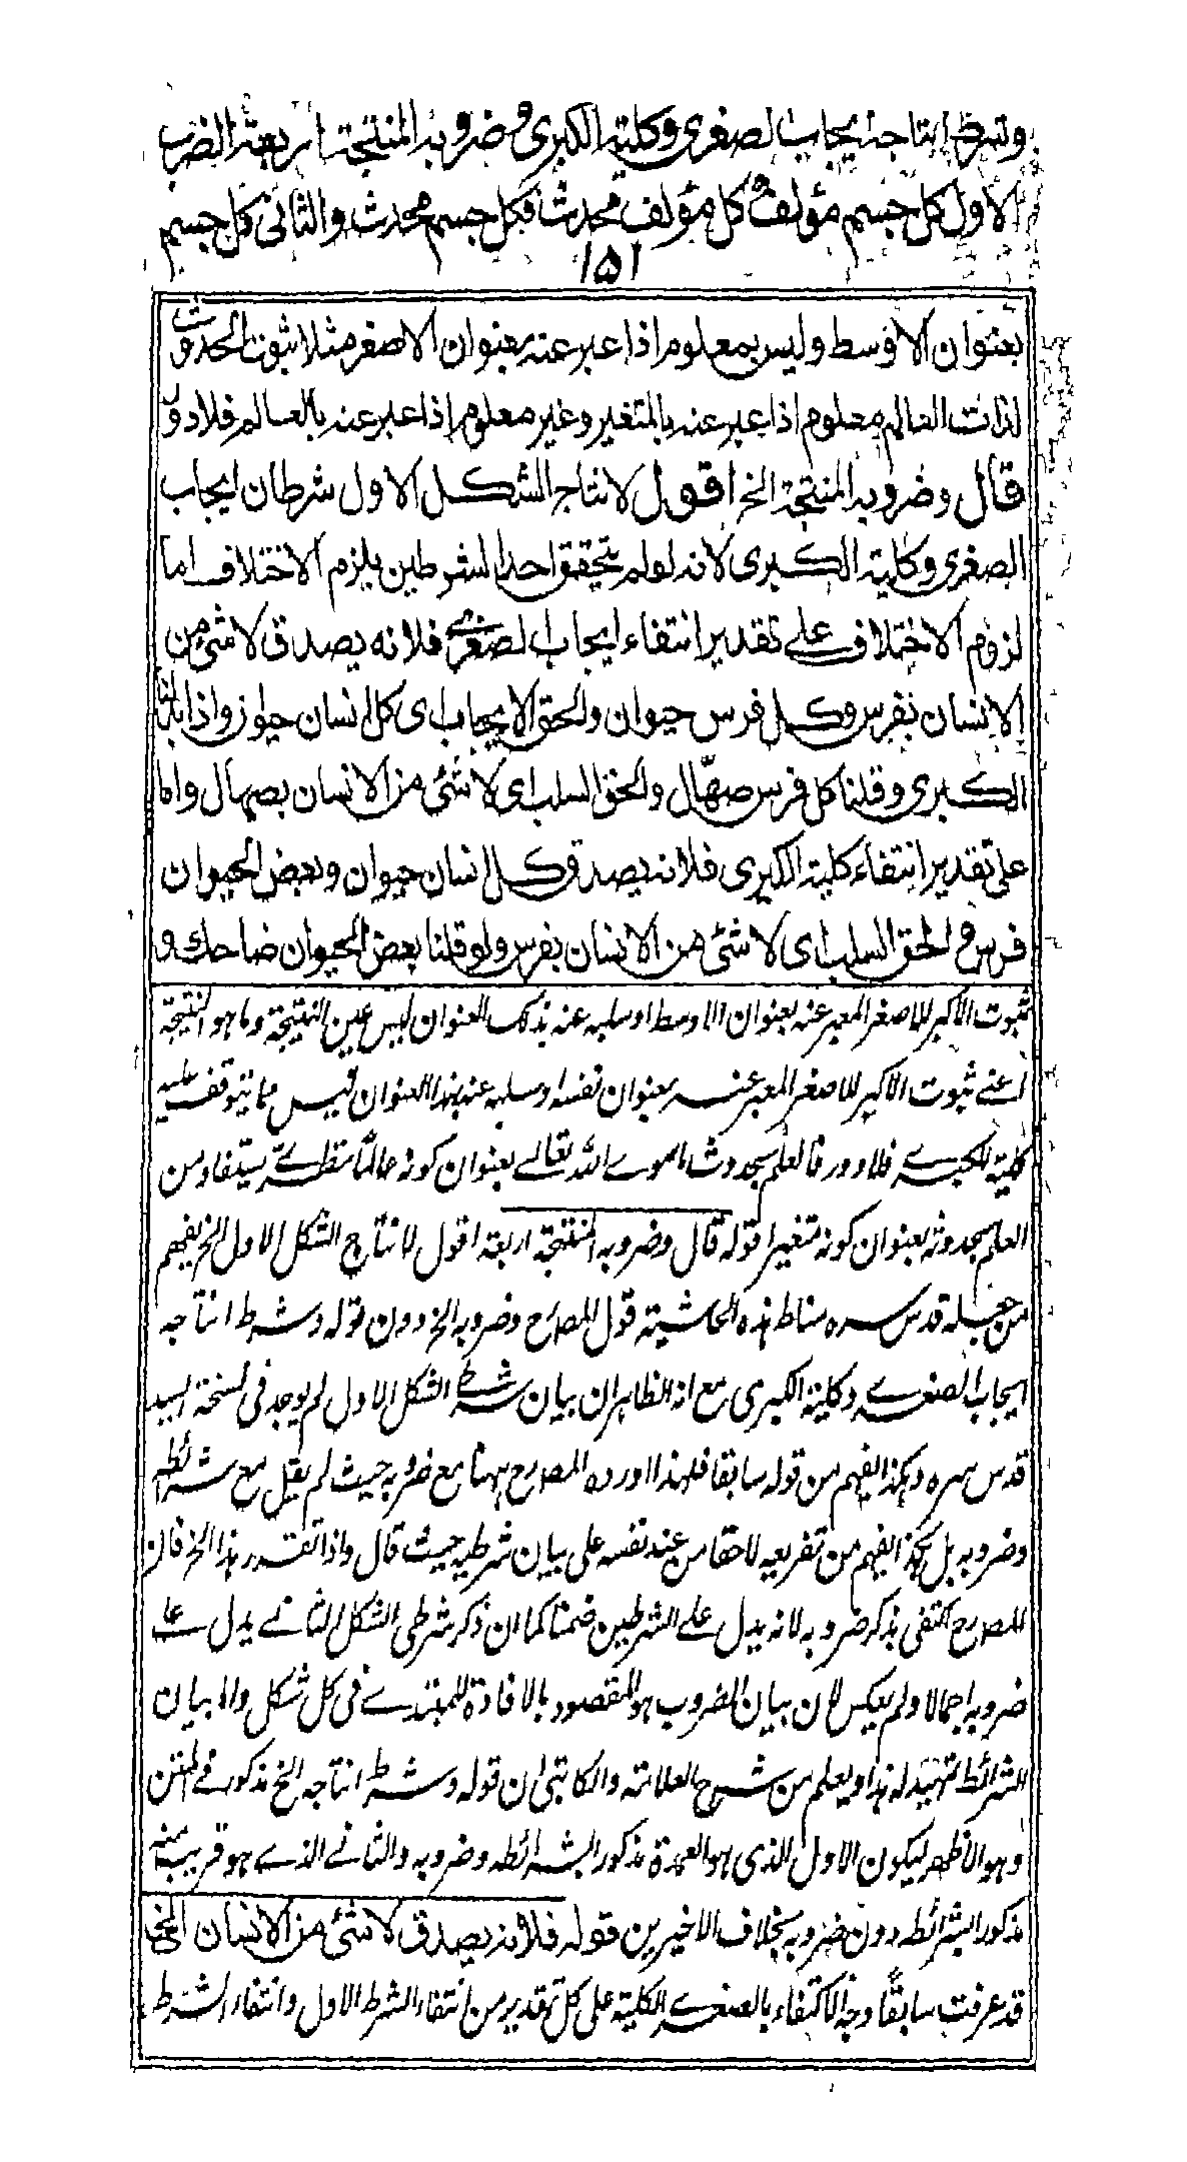 وشرط انتاجه ايجاب الصغرى وكلية الكبرى وضروبه المنتجة اربعة الضرب
الاول كل جسم مؤلف وكل مؤلف محدث فكل جسم محدث والثانى كل جسم
١٥١
بعنوان الاوسط وليس بمعلوم اذا عبر عنه بعنوان الاصغر مثلا ثبوت الحدوث
لذات العالم معلوم اذا عبر عنه بالمتغير وغير معلوم اذا عبر عنه بالعالم فلا دور
قال وضروبه المنتجة الخ اقول لانتاج الشكل الاول شرطان ايجاب
الصغرى وكلية الكبرى لانه لو لم يتحقق احد الشرطين يلزم الاختلاف اما
لزوم الاختلاف على تقدير انتفاء ايجاب الصغرى فلانه يصدق لا شئ من
الانسان بفرس وكل فرس حيوان والحق الايجاب اى كل انسان حيوان واذا بدلنا
الكبرى وقلنا كل فرس صهّال والحق السلب اى لا شئ من الانسان بصهال واما
على تقدير انتفاء كلية الكبرى فلانه يصدق كل انسان حيوان وبعض الحيوان
فرس والحق السلب اى لا شئ من الانسان بفرس ولو قلنا بعض الحيوان ضاحك و
ثبوت الاكبر للاصغر المعبر عنه بعنوان الاوسط او سلبه عنه بذلك العنوان ليس عين النتيجة وما هو النتيجة
اعنے ثبوت الاكبر للاصغر المعبر عنه بعنوان نفسه او سلبه عنه بهذا العنوان فليس مما يتوقف عليه
كلية الكبرے فلا دور فالعلم بحدوث ماسوے اللّٰه تعالے بعنوان كونه عالمًا نظرے يستفاد من
العلم بحدوثه بعنوان كونه متغيرا قوله قال وضروبه المنتجة اربعة اقول لانتاج الشكل الاول الخ يفهم
من جعله قدس سره مناط هذه الحاشية قول المصرح وضروبه الخ دون قوله وشرط انتاجه
ايجاب الصغرے وكلية الكبرى مع انه الظاهر ان بيان شرط الشكل الاول لم يوجد فى نسخة السيد
قدس سره وهكذا يفهم من قوله سابقا فلهذا اورده المصرح ههنا مع ضروبه حيث لم يقل مع شرائطه
وضروبه بل هكذا يفهم من تفريعه لاحقا من عند نفسه على بيان شرطيه حيث قال واذا تقرر هذا الخ فان
المصرح اكتفى بذكر ضروبه لانه يدل على الشرطين ضمنا كما ان ذكر شرطى الشكل الثانے يدل علے
ضروبه اجمالا ولم يعكس لان بيان الضروب هو المقصود بالافادة للمبتدے فى كل شكل واما بيان
الشرائط تمهيد له هذا ويعلم من شرح العلامة والكاتبى ان قوله وشرط انتاجه الخ مذكور فے المتن
وهو الاظهر ليكون الاول الذى هو العمدة مذكورا بشرائطه وضروبه والثانے الذے هو قريب منه
مذكورا بشرائطه دون ضروبه بخلاف الاخيرين قوله فلانه يصدق لا شئ من الانسان الخ
قد عرفت سابقًا وجه الاكتفاء بالصغرے الكلية على كل تقدير من انتفاء الشرط الاول وانتفاء الشرط